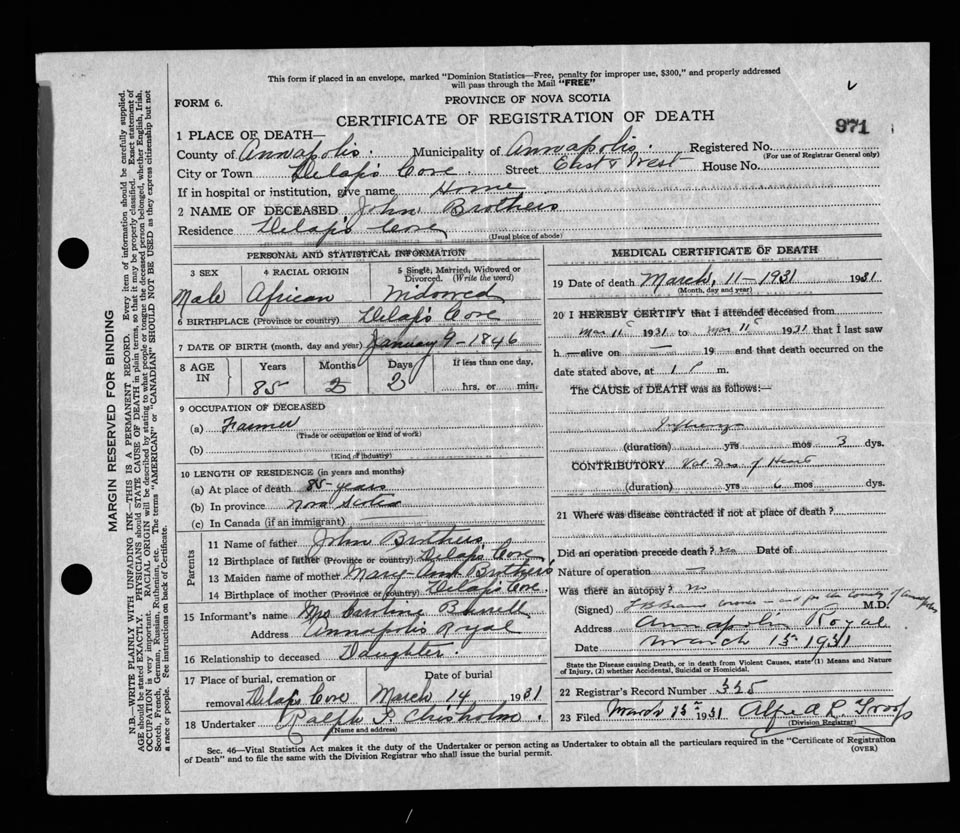 This form if placed in an envelope, marked "Dominion Statistics—Free, penalty for improper use, $300," and properly addressed
will pass through the Mail "FREE"
FORM 6.
PROVINCE OF NOVA SCOTIA
CERTIFICATE OF REGISTRATION OF DEATH
971
1 PLACE OF DEATH—
County of Annapolis. Municipality of Annapolis. Registered No.
(For use of Registrar General only)
City or Town Delap's Cove Street East & West House No.
If in hospital or institution, give name Home
2 NAME OF DECEASED John Brothers
Residence Delap's Cove
(Usual place of abode)
PERSONAL AND STATISTICAL INFORMATION
3 SEX
4 RACIAL ORIGIN
5 Single, Married, Widowed or
Divorced. (Write the word)
Male African Widowed
6 BIRTHPLACE (Province or country) Delap's Cove
7 DATE OF BIRTH (month, day and year) January 9-1846
8 AGE IN
Years Months Days If less than one day,
85 2 2 hrs. or min.
9 OCCUPATION OF DECEASED
(a) Farmer
(Trade or occupation or kind of work)
(b)
(Kind of industry)
10 LENGTH OF RESIDENCE (in years and months)
(a) At place of death 85-years
(b) In province Nova Scotia
(c) In Canada (if an immigrant)
Parents
11 Name of father John Brothers
12 Birthplace of father (Province or country) Delap's Cove
13 Maiden name of mother Mary-Ann Brothers
14 Birthplace of mother (Province or country) Delap's Cove.
15 Informant's name Mrs Caroline
Address Annapolis Royal
16 Relationship to deceased Daughter.
17 Place of burial, cremation or Date of burial
removal Delaps Cove March 14 1931
18 Undertaker Ralph Chisholm.
(Name and address)
MEDICAL CERTIFICATE OF DEATH
19 Date of death March, 11-1931 1931
(Month, day and year)
20 I HEREBY CERTIFY that I attended deceased from
Mar 11 1931 to Mar 11 1931 that I last saw
h —alive on — 19 and that death occurred on the
date stated above, at 1 P m.
The CAUSE of DEATH was as follows:—
Influenza
(duration) yrs mos 3 dys.
CONTRIBUTORY Val Dis of Heart
(duration) yrs 6 mos dys.
21 Where was disease contracted if not at place of death?
Did an operation precede death? no Date of
Nature of operation —
Was there an autopsy? no
(Signed) M.D.
Address Annapolis Royal
Date March 13 1931
State the Disease causing Death, or in death from Violent Causes, state (1) Means and Nature
of Injury, (2) whether Accidental, Suicidal or Homicidal.
22 Registrar's Record Number 325
23 Filed March 13 1931 Alfred R. Troop
(Division Registrar)
Sec. 46—Vital Statistics Act makes it the duty of the Undertaker or person acting as Undertaker to obtain all the particulars required in the "Certificate of Registration
of Death" and to file the same with the Division Registrar who shall issue the burial permit.
(OVER)
MARGIN RESERVED FOR BINDING
N.B.—WRITE PLAINLY WITH UNFADING INK—THIS IS A PERMANENT RECORD. Every item of information should be carefully supplied.
AGE should be stated EXACTLY. PHYSICIANS should STATE CAUSE OF DEATH in plain terms, so that it may be properly classified. Exact statement of
OCCUPATION is very important. RACIAL ORIGIN will be described by stating to what people or tongue the deceased person belonged, whether English, Irish,
Scotch, French, German, Russian, Ruthenian, etc. The terms "AMERICAN" or "CANADIAN" SHOULD NOT BE USED as they express citizenship but not
a race or people. See instructions on back of Certificate.